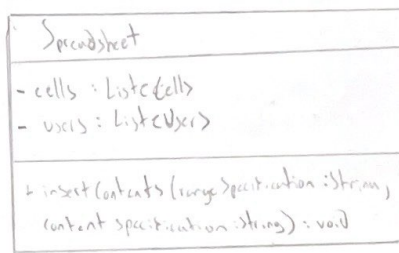 Spreadsheet
- cells : List<Cell>
- users : List<User>
+ insertContents (rangeSpecification : String,
contentSpecification : String) : void